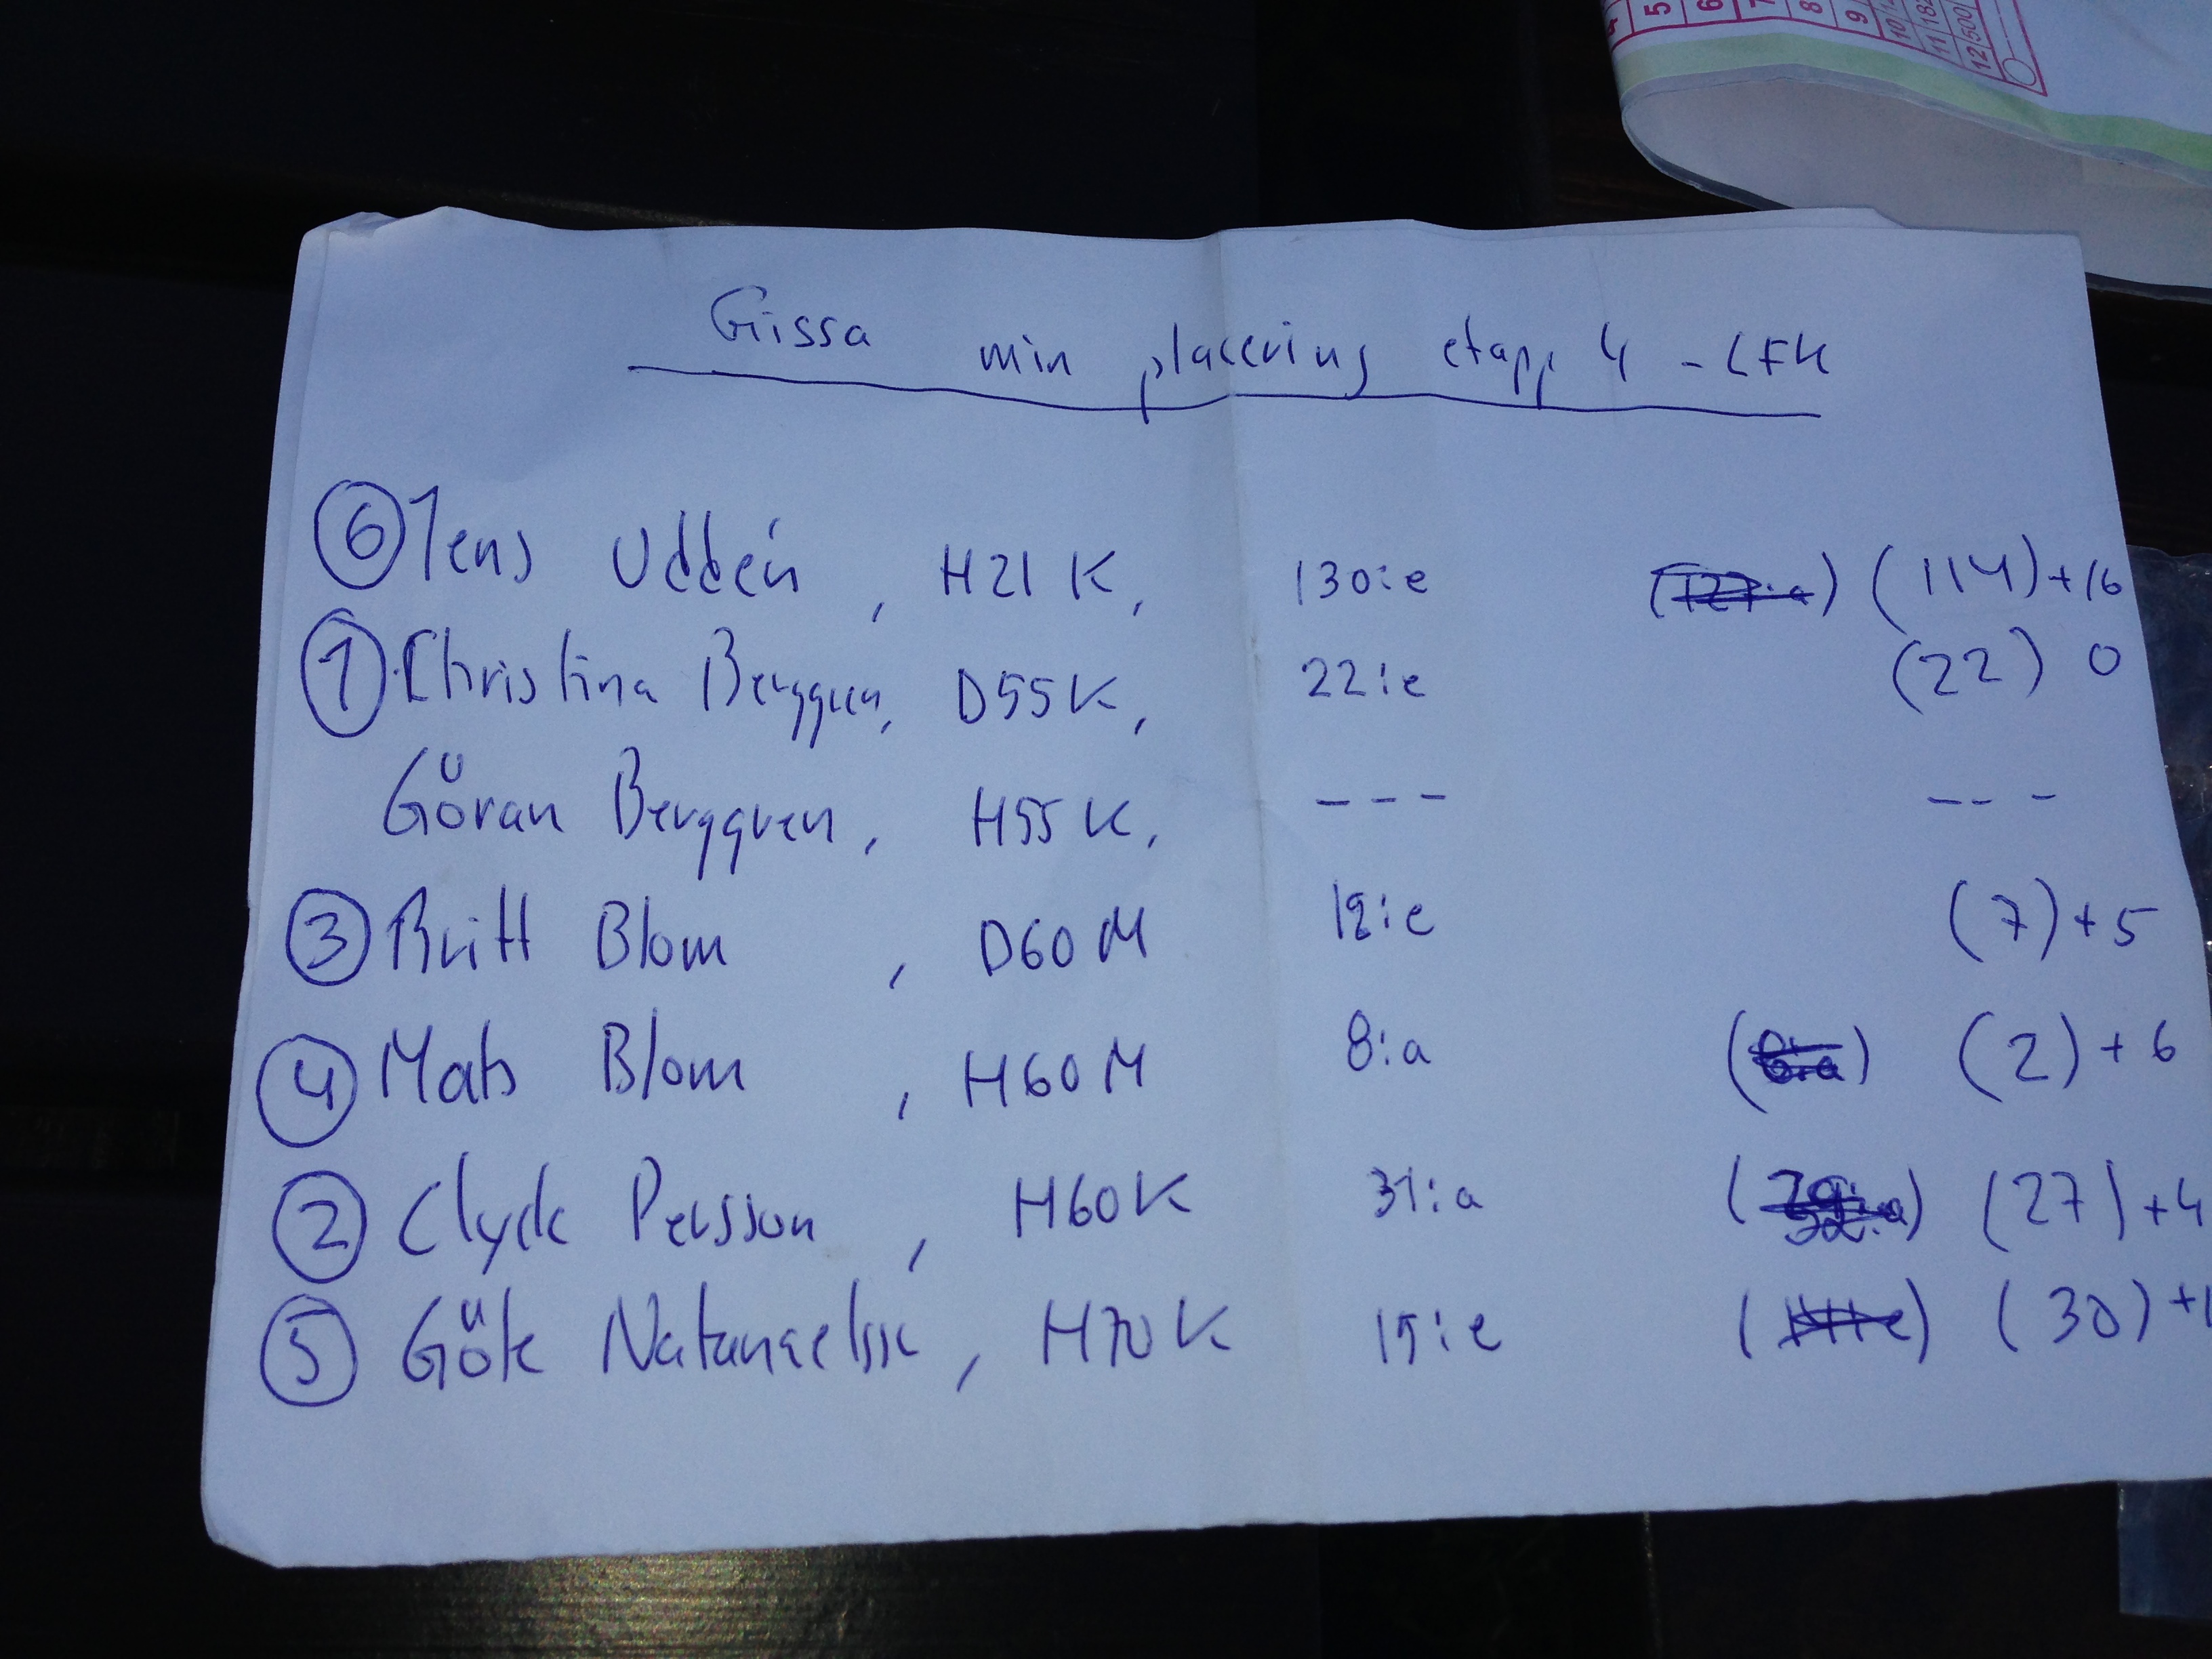 4
5
6
7
8
9
10
11 182
12 500
Gissa min placering etapp 4 - LFK
6 Jens Uddén, H21K, 130:e (114) +16
1 Christina Berggren, D55K, 22:e (22) 0
Göran Berggren, H55K, --- ---
3 Britt Blom, D60M 12:e (7) +5
4 Mats Blom, H60M 8:a (2) +6
2 Clyde Persson, H60K 31:a (27) +4
5 Göte H70K 15:e (30)